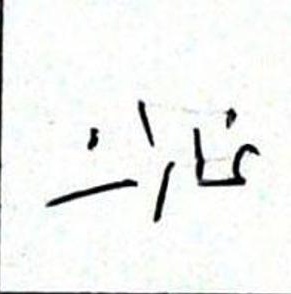 غارات